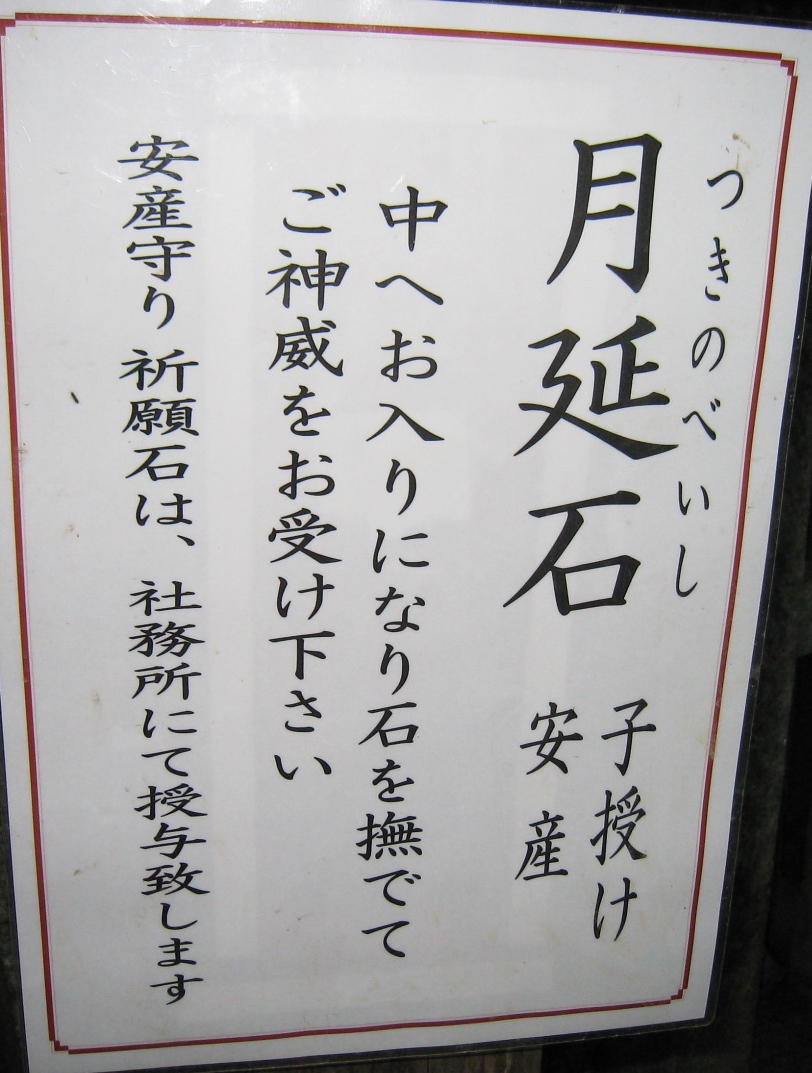 つきのべいし
月延石
子授け
安産
中へお入りになり石を撫でて
ご神威をお受け下さい
安産守り 祈願石は、社務所にて授与致します